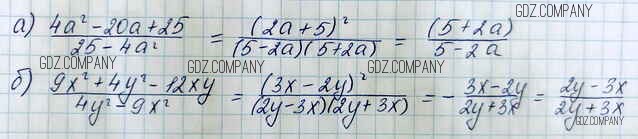 GDZ.COMPANY
а) (4a² - 20a + 25)/(25 - 4a²) = (2a + 5)²/((5 - 2a)(5 + 2a)) = (5 + 2a)/(5 - 2a)
GDZ.COMPANY GDZ.COMPANY GDZ.COMPANY
б) (9x² + 4y² - 12xy)/(4y² - 9x²) = (3x - 2y)²/((2y - 3x)(2y + 3x)) = - (3x - 2y)/(2y + 3x) = (2y - 3x)/(2y + 3x)
GDZ.COMPANY GDZ.COMPANY